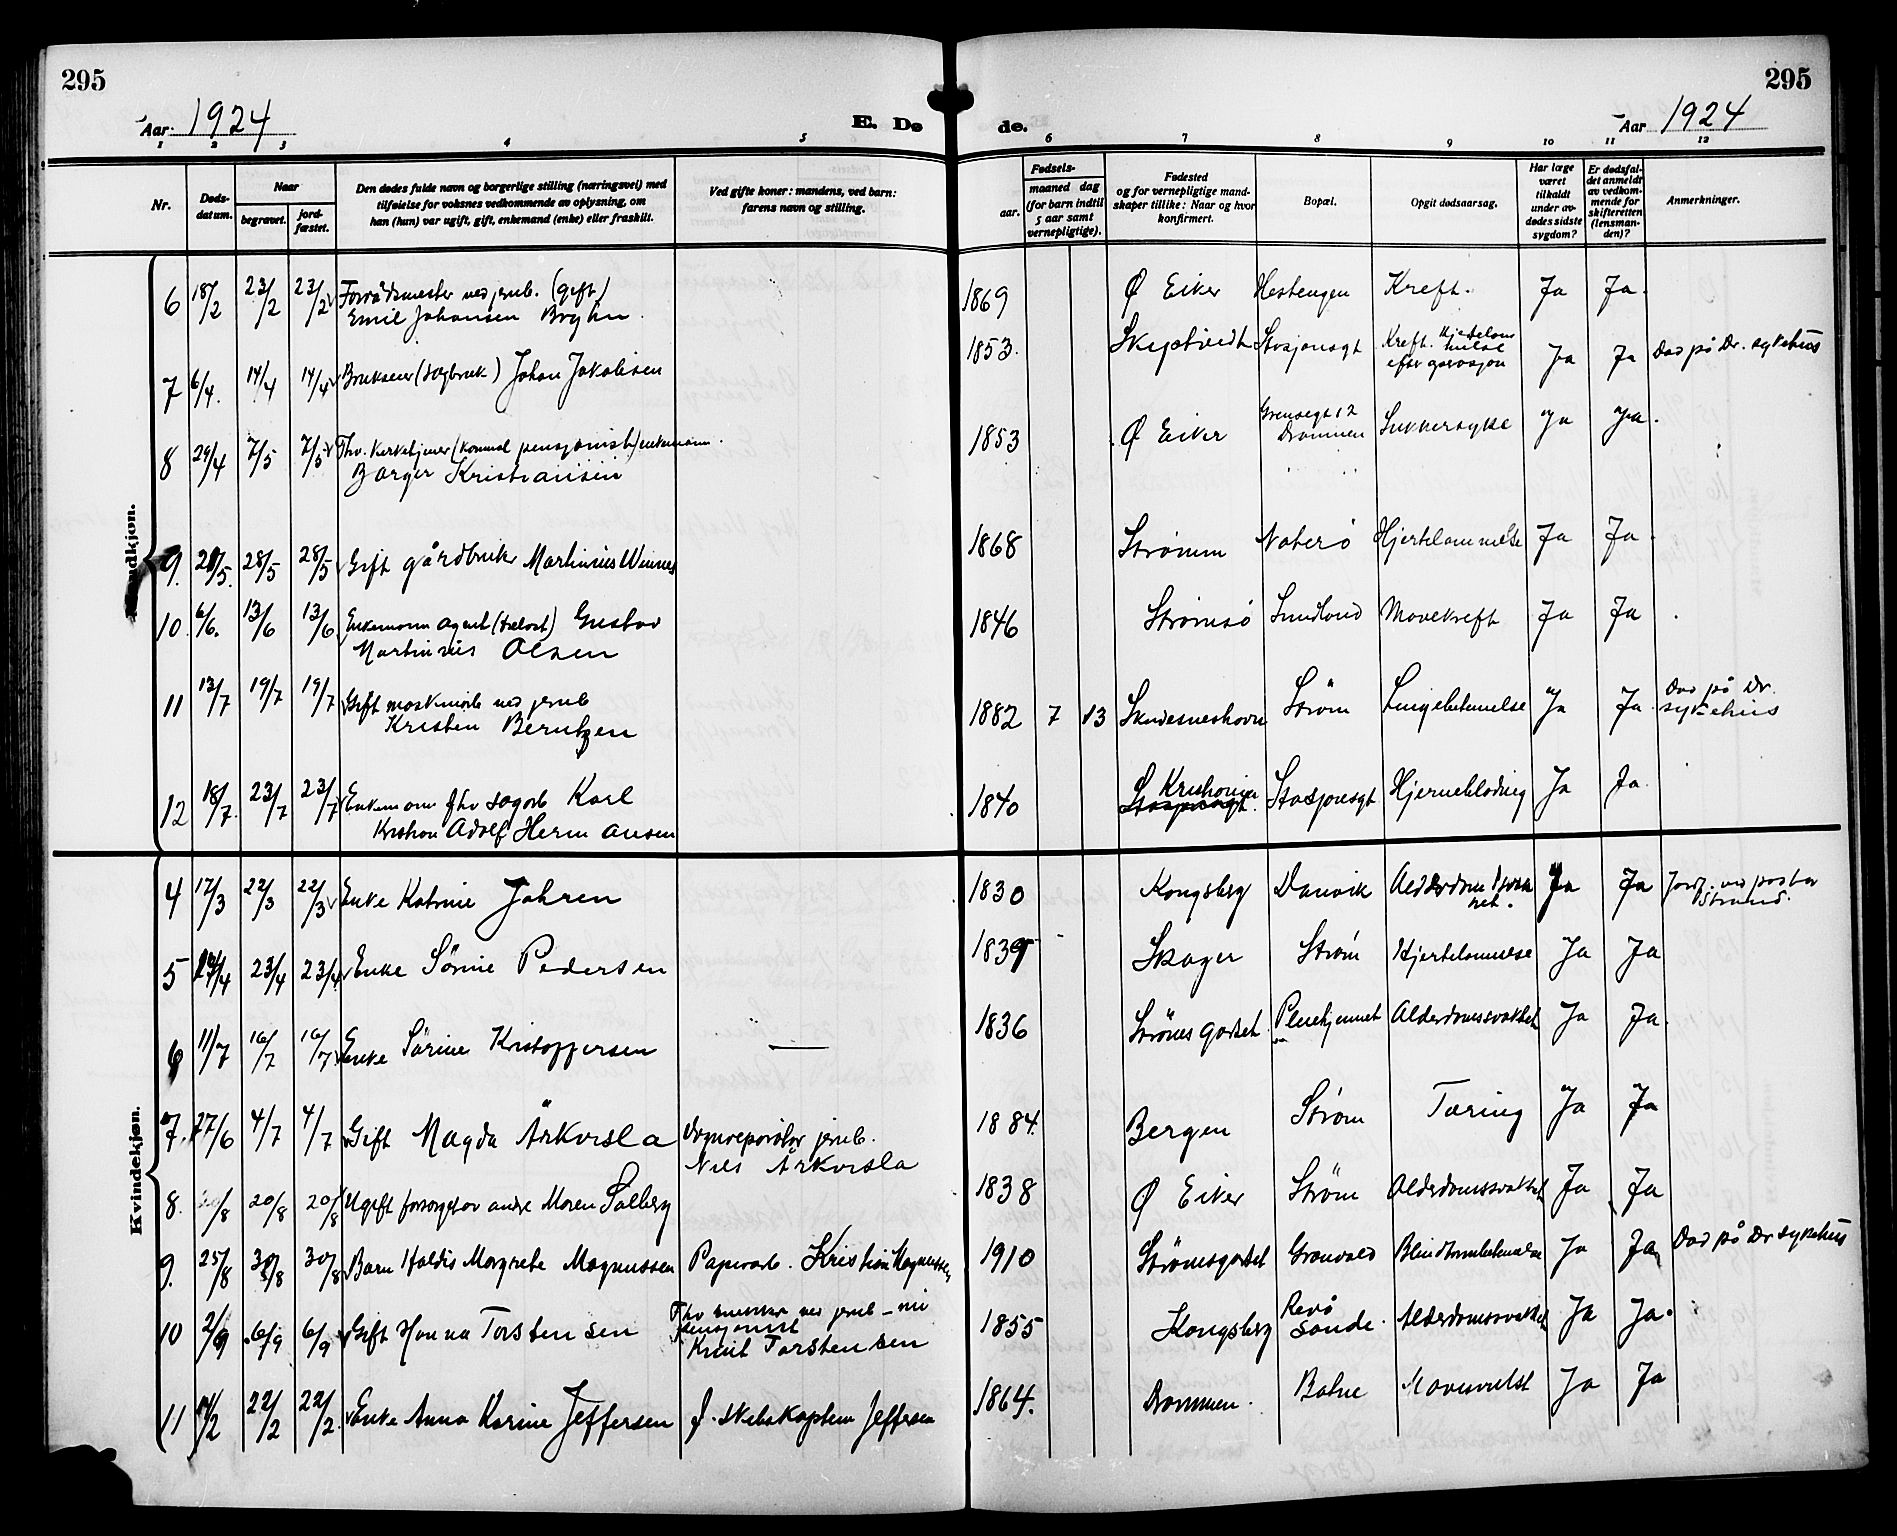 295
295
Aar 1924
E. Døde.
Aar 1924
1 2 3 4 5 6 7 8 9 10 11 12
Nr.
Døds-datum.
Naar
begravet.
jord-fæstet.
Den dødes fulde navn og borgerlige stilling (næringsvei) med
tilføielse for voksnes vedkommende av oplysning, om
han (hun) var ugift, gift, enkemand (enke) eller fraskilt.
Ved gifte koner: mandens, ved barn:
farens navn og stilling.
Fødsels-
aar.
maaned dag
(for barn indtil
5 aar samt
vernepligtige).
Fødested
og for vernepligtige mand-
skaper tillike: Naar og hvor
konfirmert.
Bopæl.
Opgit dødsaarsag.
Har læge
været
tilkaldt
under av-
dødes sidste
sygdom?
Er dødsfal-
det anmeldt
av vedkom-
mende for
skifteretten
(lensman-
den)?
Anmerkninger.
Mandkjøn.
6 18/2 23/2 23/2 Forrådsmester ved jernb. (gift) 1869 Ø Eiker Hestengen Kreft. Ja Ja.
Emil Johansen Bryhn.
7 6/4. 14/4 14/4 Brukseier (sagbruk) Johan Jakobsen 1853. Stasjonsgt Kreft. Hjertelammelse Ja Ja Død på Dr. sykehus
efter operasjon
8 29/4 7/5 7/5 Fhv. kirketjener (komunal pensjonist) enkemann. 1853 Ø Eiker Grensegt 12 Sukkersyke Ja Ja.
Borger Kristiansen Drammen
9. 28/5 28/5 Gift gårdbruker Martinius Winnes 1868 Strømm Nøterø Hjertelammelse Ja Ja.
10. 6/6. 13/6 13/6 Enkemann agent (trelast) Gustav 1846 Strømsø Sundland Mavekreft Ja Ja.
Martinius Olsen
11 13/7 19/7 19/7 Gift maskinarb ved jernb 1882 7 13 Skudesneshavn Strøm Lungebetennelse Ja Ja. Død på Dr.
Kristen Berntzen sykehus
12 18/7. 23/7 23/7 Enkemann fhv sagarb Karl 1840 Kristiania Stasjonsgt Hjerneblødning Ja Ja.
Kristian Adolf Hermansen
Kvindekjøn.
4 17/3 22/3 22/3 Enke Katrine Jahren 1830 Kongsberg Danvik Ja Ja Jordf. ved pastor
Strand.
5 23/4 23/4 Enke Sørine Pedersen 1839 Skoger Strøm Hjertelammelse Ja Ja
6 11/7 16/7 16/7 Enke Sørine Kristoffersen — 1836 Strømsgodset Pleiehjemmet Alderdomssvakhet Ja Ja.
7. 27/6 4/7 4/7 Gift Magda Årkvisla Vognreparatør jernb. 1884. Bergen Strøm Tæring Ja Ja
Nils Årkvisla
8. 20/8 20/8 Ugift forsørget av andre Maren Solberg 1838 Ø Eiker Strøm Alderdomssvakhet Ja Ja
9. 25/8 30/8 30/8 Barn Haldis Margrete Magnussen Papirarb. Kristian Magnussen 1910 Strømsgodset Grønvold Blindtarmbetennelse Ja Ja Død på Dr sykehus
10 2/9 6/9 6/9 Gift Hanna Torstensen Fhv ved jernb – nu 1855 Kongsberg Alderdomssvakhet Ja Ja.
pensjonist
Knut Torstensen
11 22/2 22/2. Enke Anna Karine Jeffersen f. skibskaptein Jeffersen 1864. Drammen. Mavesvulst Ja Ja